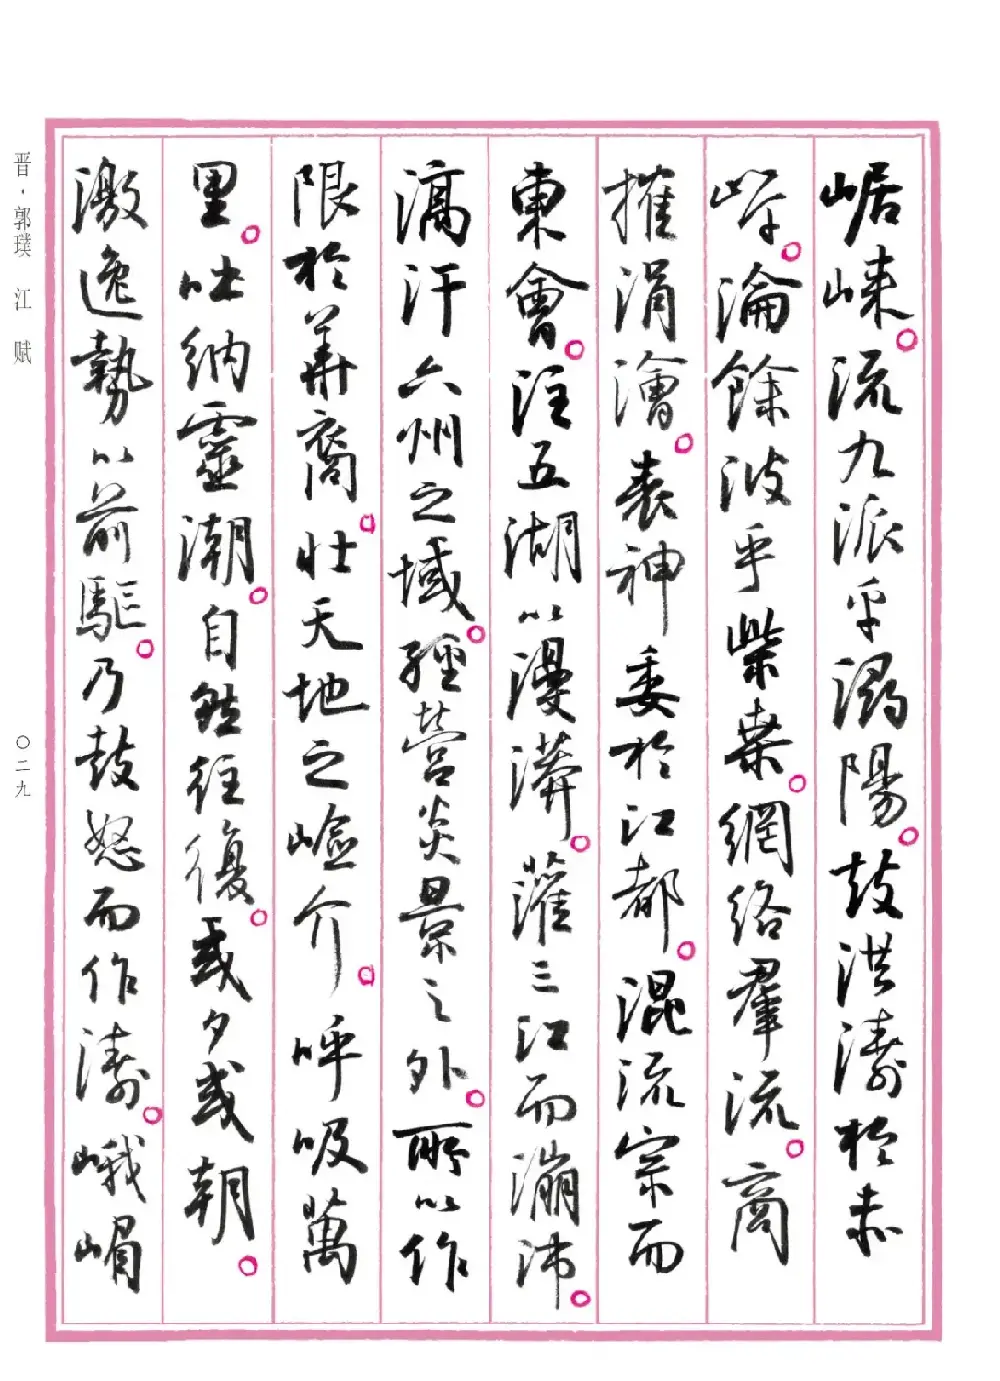 崌崍。流九派乎潯陽。鼓洪濤於赤
岸。淪餘波乎柴桑。網絡羣流。商
搉涓澮。表神委於江都。混流宗而
東會。注五湖以漫漭。灌三江而漰沛。
滈汗六州之域。經營炎景之外。所以作
限於華裔。壯天地之嶮介。呼吸萬
里。吐納靈潮。自然往復。或夕或朝。
激逸勢以前驅。乃鼓怒而作濤。峨嵋
晋·郭璞 江赋
〇二九